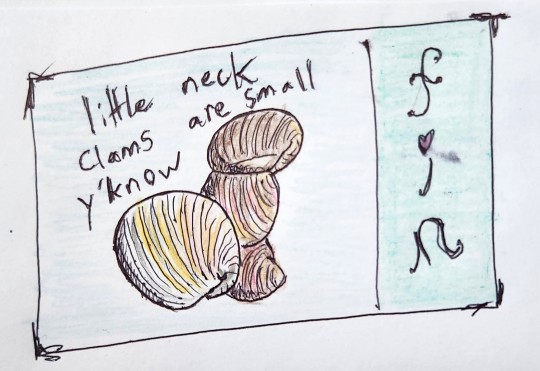 little neck
clams are small
y'know
fin